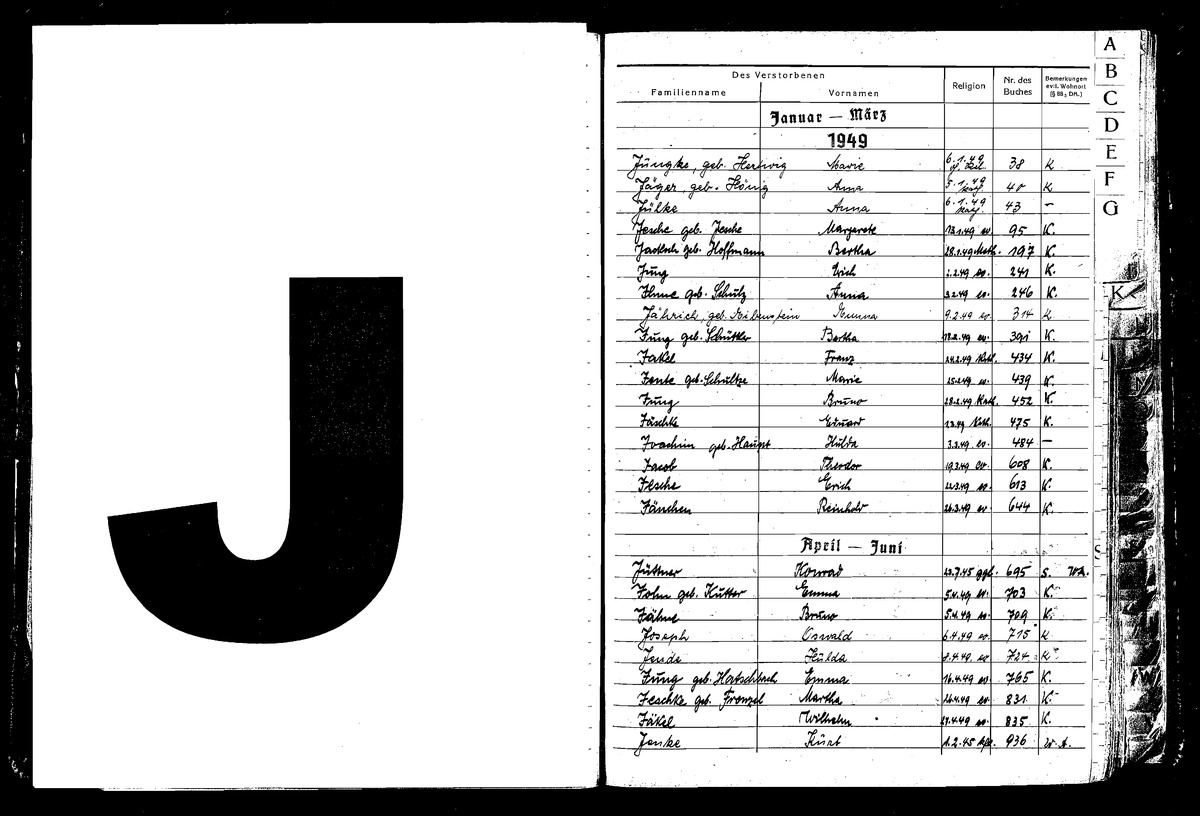 J
A
B
C
D
E
F
G
K
Des Verstorbenen
Familienname Vornamen Religion Nr. des Buches Bemerkungen evtl. Wohnort (§ 88, DA.)
Januar — März
1949
Jüngke, geb. Hertwig Marie 6.1.49 38 K
Jäger, geb. Hönig Anna 5.1.49 kath. 40 K
Jülke Anna 6.1.49 kath. 43 —
Jesche geb. Jesche Margarete 13.1.49 ev. 95 K.
Jadksch geb. Hoffmann Bertha 28.1.49 Kath. 197 K.
Jung Erich 2.2.49 ev. 241 K.
Ihme geb. Schulz Anna 3.2.49 ev. 246 K.
Jährich, geb. Emma 9.2.49 ev 314 K
Jung geb. Schüttler Bertha 18.2.49 ev. 391 K.
Jakel Franz 24.2.49 Kath. 434 K.
Jente geb. Schultze Marie 25.2.49 ev. 439 K.
Jung Bruno 28.2.49 Kath. 452 K.
Jäschke Eduard 1.3.49 Kath. 475 K.
Joachim geb. Haupt Hulda 3.3.49 ev. 484 —
Jacob Theodor 19.3.49 ev. 608 K.
Jesche Erich 22.3.49 ev. 613 K.
Jänchen Reinhold 26.3.49 ev 644 K.
April — Juni
Jüttner Konrad 7.45 ggl. 695 S. W.A.
John geb. Kutter Emma 5.4.49 ev. 703 K.
Jähne Bruno 5.4.49 ev. 709 K.
Joseph Oswald 6.4.49 ev. 715 K
Jende Hulda 8.4.49 ev 724 K
Jung geb. Hatschbach Emma 16.4.49 ev. 765 K.
Jeschke geb. Frenzel Martha 26.4.49 ev. 831 K.
Jäkel Wilhelm 27.4.49 ev. 835 K.
Jenke Kurt 1.2.45 936 W.A.